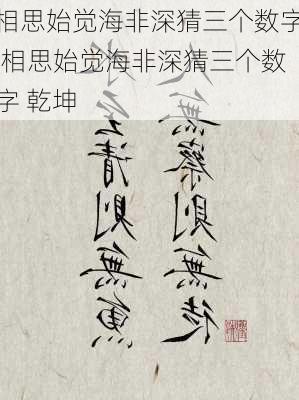 相思始觉海非深猜三个数字
相思始觉海非深猜三个数
字 乾坤
至清則無魚
人至察則無徒